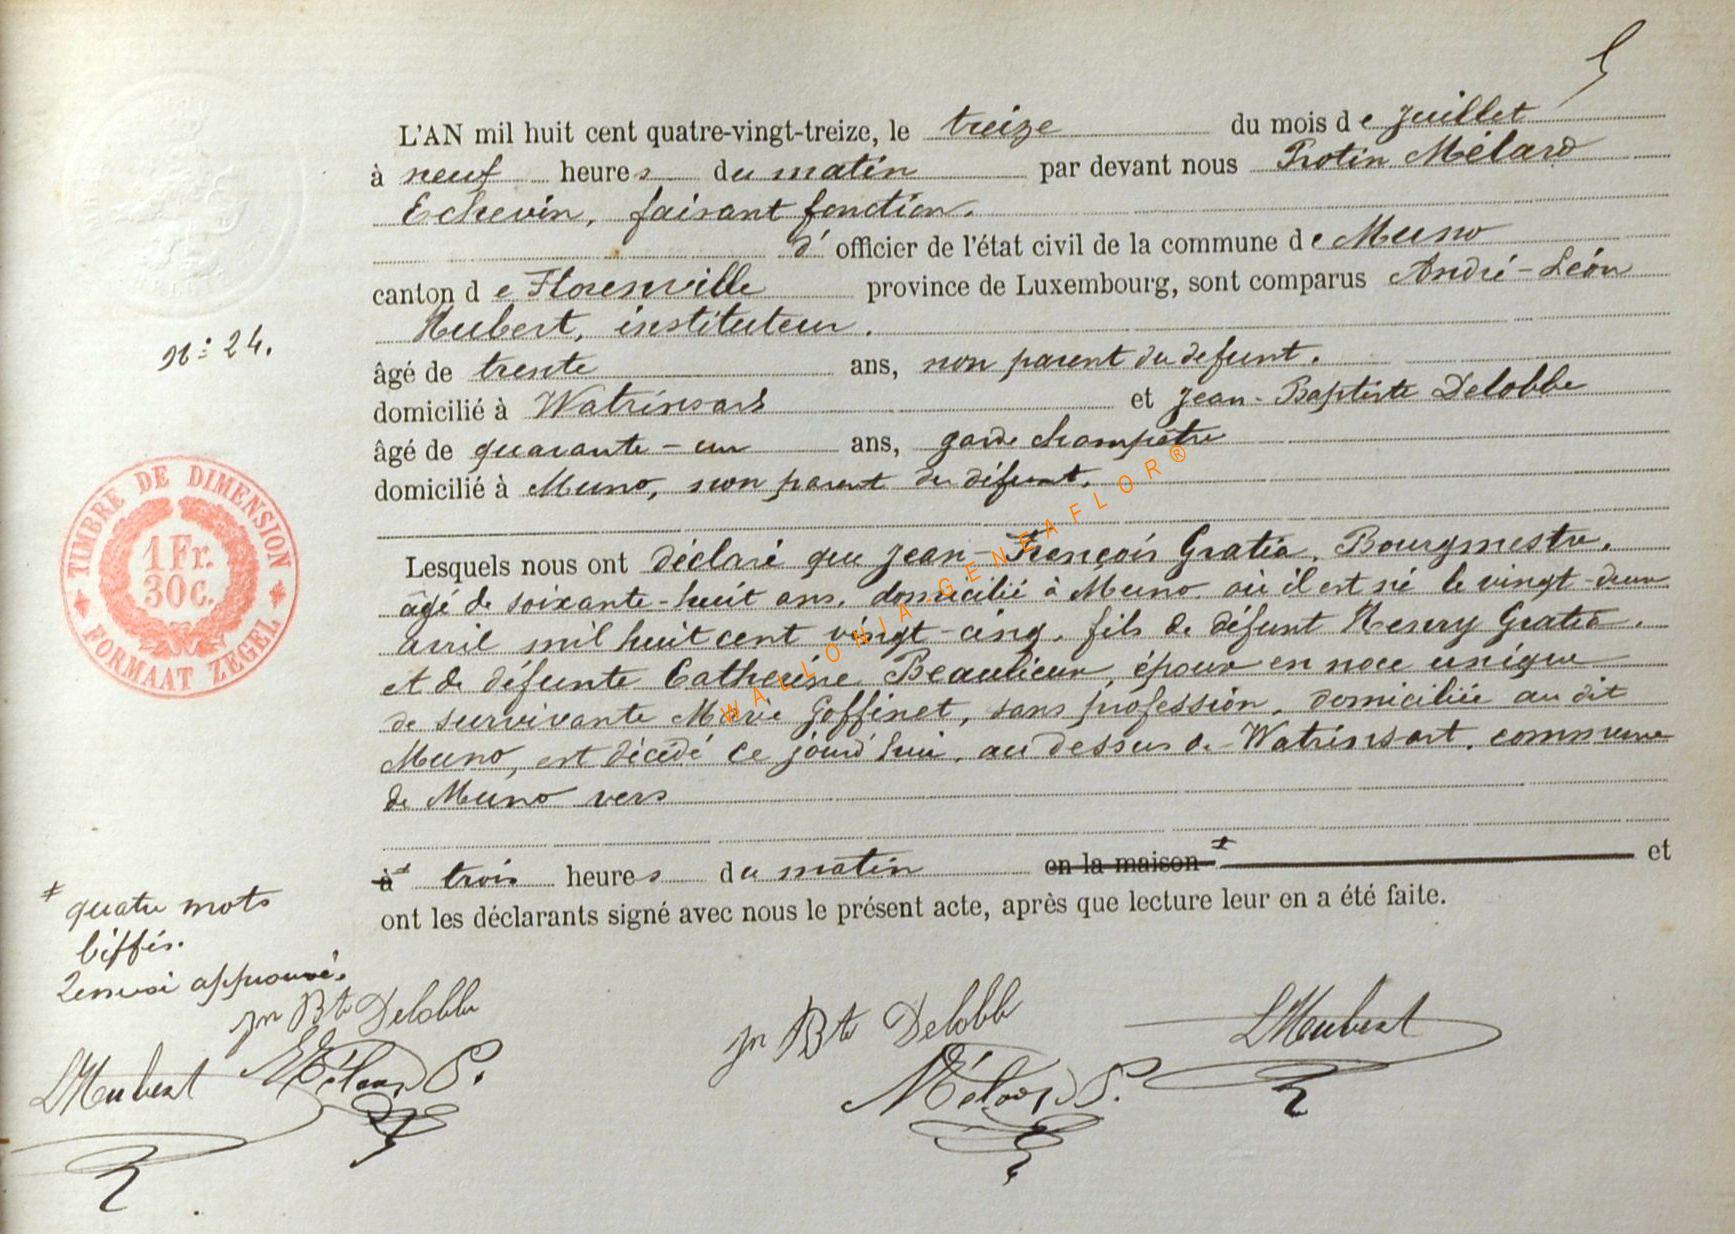 5
L'AN mil huit cent quatre-vingt-treize, le treize du mois de Juillet
à neuf heures du matin par devant nous Protin Mélard
Echevin, faisant fonction.
d' officier de l'état civil de la commune de Muno
canton de Florenville province de Luxembourg, sont comparus André-Léon
Hubert, instituteur.
n° 24.
âgé de trente ans, non parent du defunt.
domicilié à Watrinsart et Jean-Baptiste Delobbe
âgé de quarante-un ans, garde champêtre
domicilié à Muno, non parent du défunt.
TIMBRE DE DIMENSION
1 Fr.
30 c.
FORMAAT ZEGEL
WALLONIA GENEAFLOR®
Lesquels nous ont déclaré que Jean-François Gratia, Bourgmestre,
âgé de soixante-huit ans, domicilié à Muno où il est né le vingt-deux
avril mil huit cent vingt-cinq, fils de défunt Henry Gratia,
et de défunte Catherine Beaulieux, époux en noce unique
de survivante Marie Goffinet, sans profession, domiciliée au dit
Muno, est décédé ce jourd'hui, au dessus de Watrinsart, commune
de Muno vers
à trois heures du matin en la maison et
ont les déclarants signé avec nous le présent acte, après que lecture leur en a été faite.
quatre mots
biffés.
Renvoi approuvé.
Jn Bte Delobbe
LHubert Mélard P.
Jn Bte Delobbe LHubert
Mélard P.